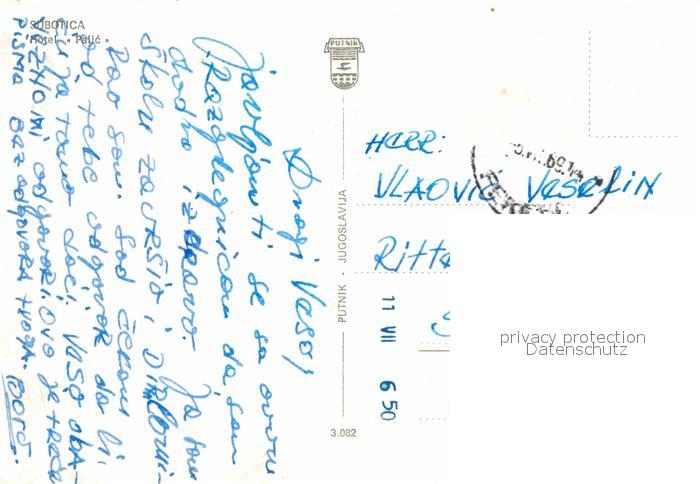 SUBOTICA
Hotel • Palić •
Dragi Vaso,
Javljam ti se sa ovom
Razglednicom da sam
došao
Ja sam
školu završio i Diplomi-
rao sam. Sad čekam
od tebe odgovor da li
ću ja tamo doći. Vaso oba-
odgovori. Ovo je treće
Pisma bez odgovora tvoga. Boro.
PUTNIK
PUTNIK - JUGOSLAVIJA
3.082
HERR:
VLAOVIĆ VESELIN
Ritte
11 VII 6 50
privacy protection
Datenschutz